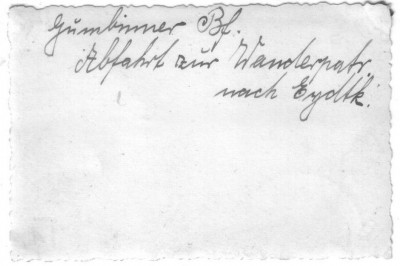 Gumbinner Bf.
Abfahrt zur Wanderpatr.
nach Eydtk.